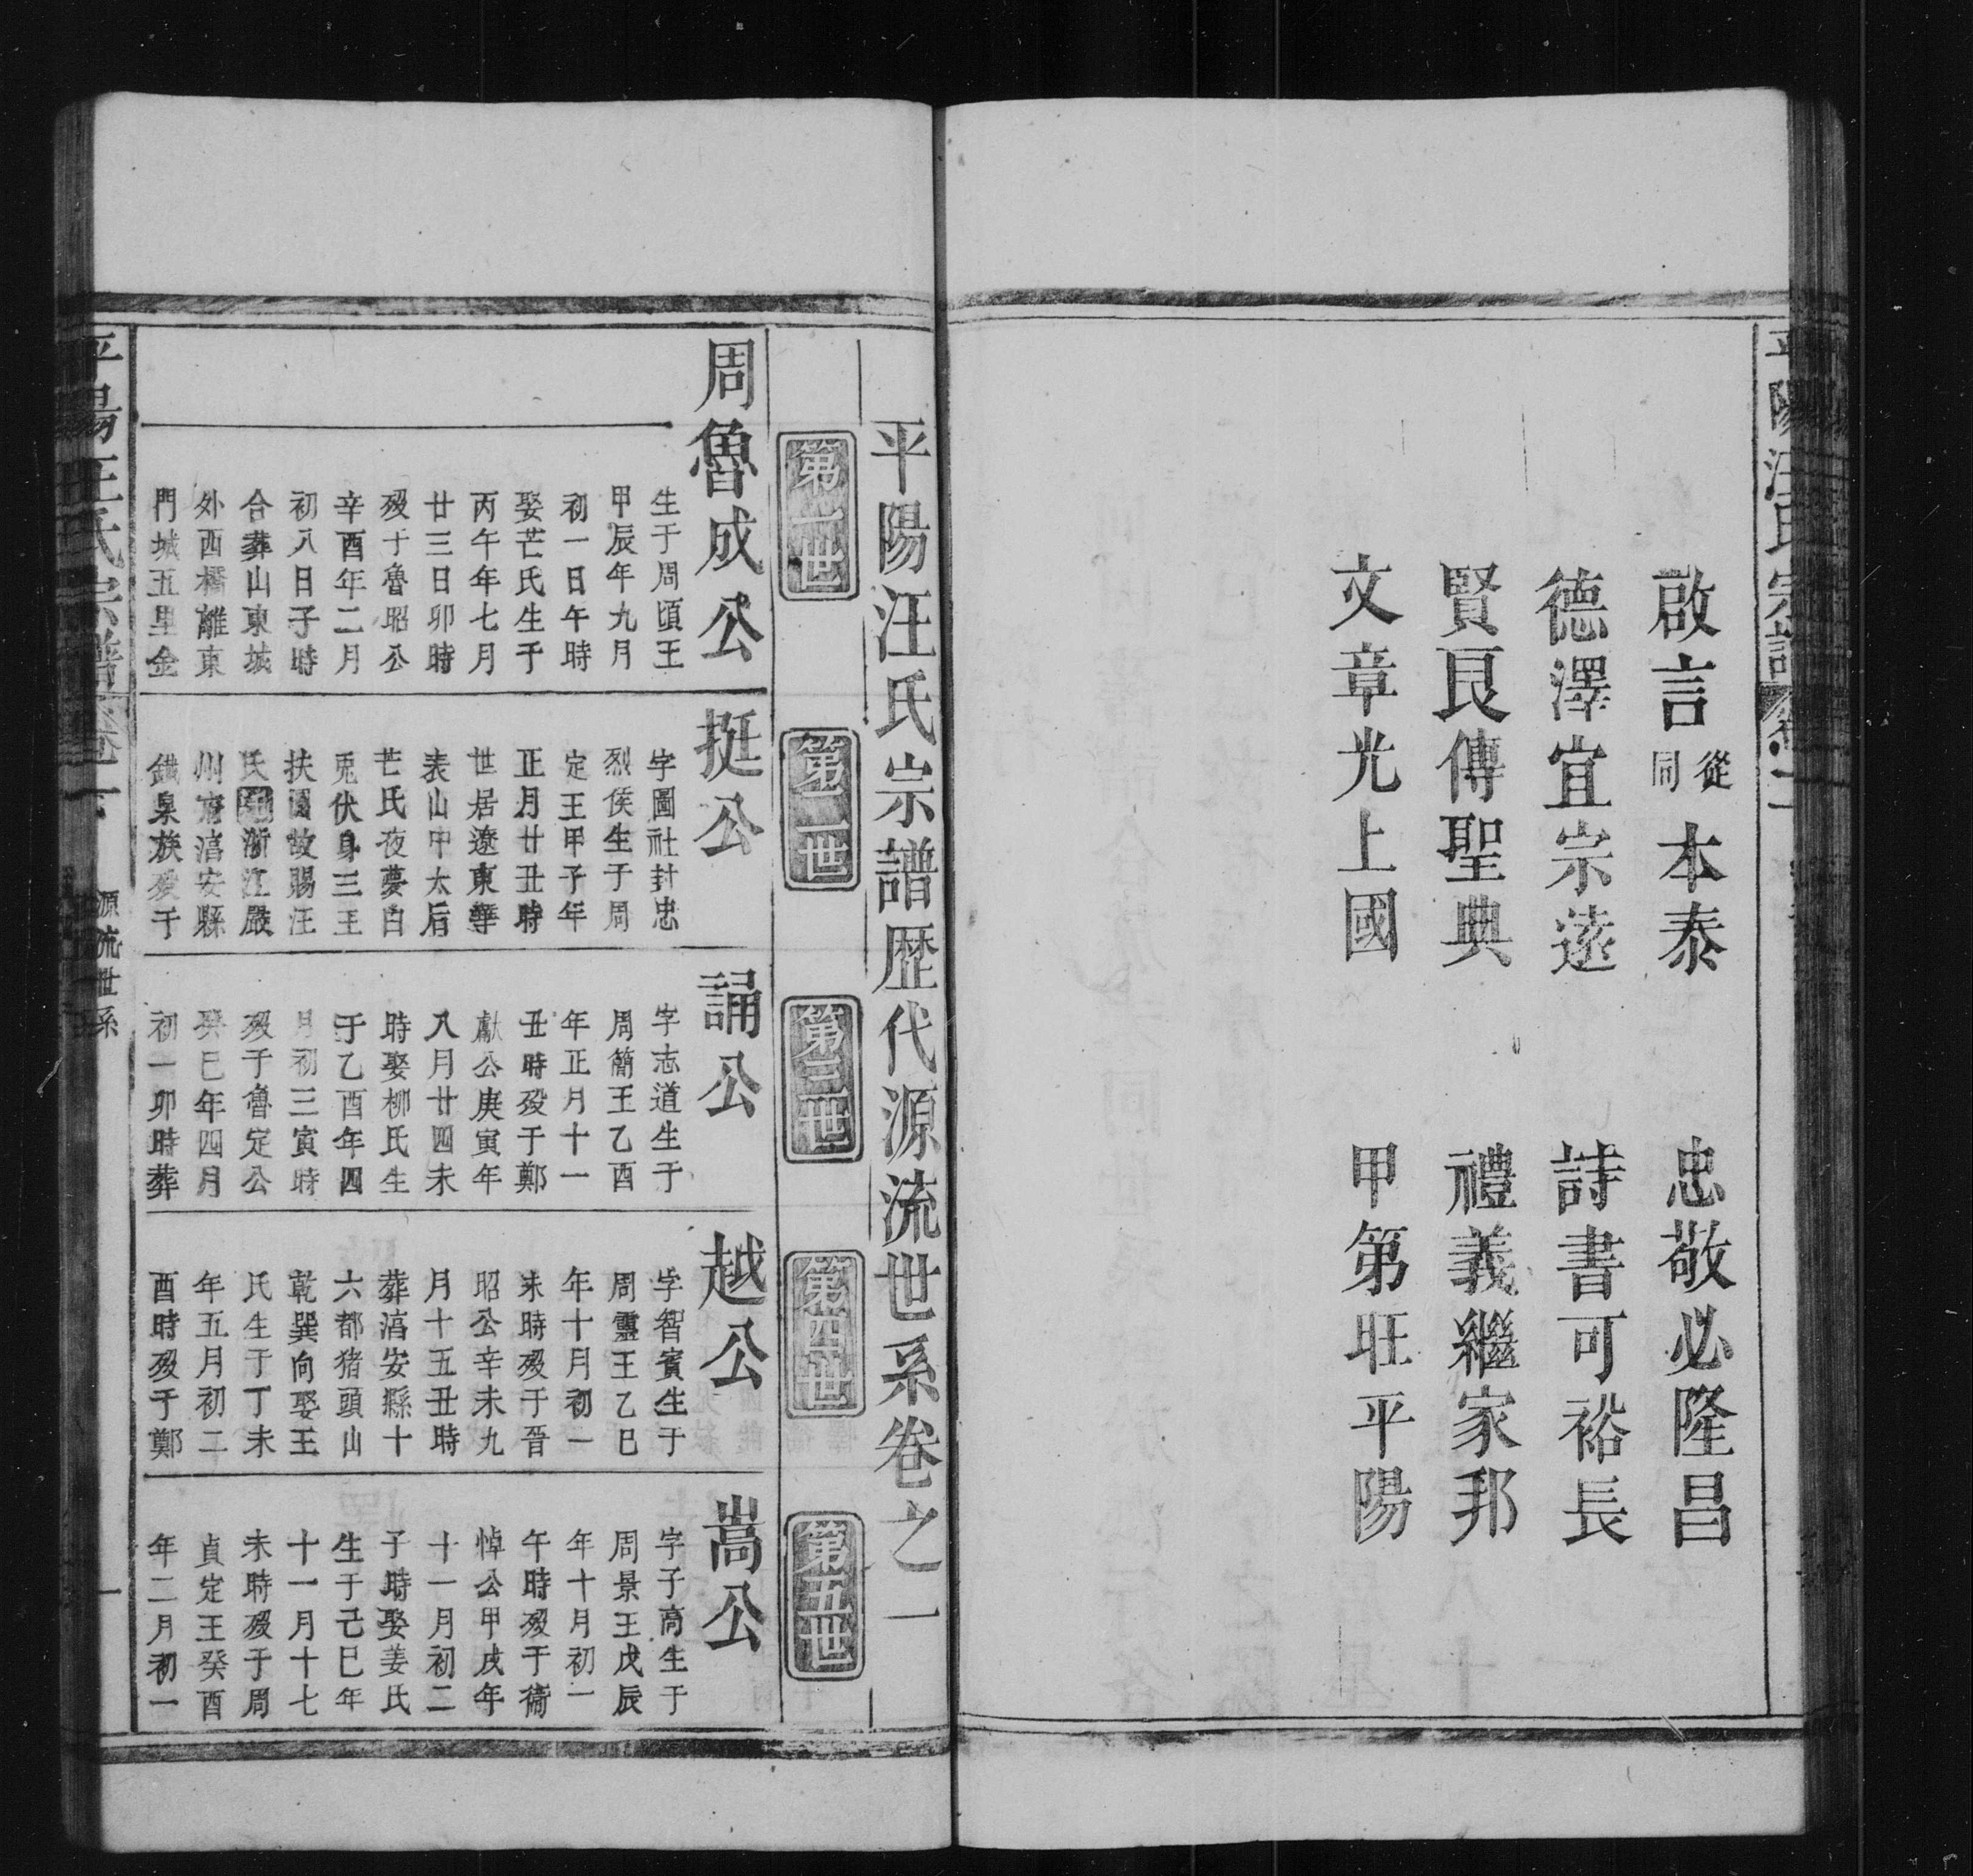 啟言從同本泰
忠敬必隆昌
德澤宜宗遠
詩書可裕長
賢良傳聖典
禮義繼家邦
文章光上國
甲第旺平陽
平陽汪氏宗譜歷代源流世系卷之一
第一世
第二世
第三世
第四世
第五世
周魯成公
生于周頃王
甲辰年九月
初一日午時
娶芒氏生于
丙午年七月
廿三日卯時
歿于魯昭公
辛酉年二月
初八日子時
合葬山東城
外西橋離東
門城五里金
挺公
字圖社封忠
烈侯生于周
定王甲子年
正月廿丑時
世居遼東華
表山中太后
芒氏夜夢白
兎伏身三王
扶國故賜汪
氏 浙江嚴
州府湻安縣
鐵泉族歿于
誦公
字志道生于
周簡王乙酉
年正月十一
丑時歿于鄭
獻公庚寅年
八月廿四未
時娶柳氏生
于乙酉年四
月初三寅時
歿于魯定公
癸巳年四月
初一卯時葬
越公
字智賓生于
周靈王乙巳
年十月初一
未時歿于晉
昭公辛未九
月十五丑時
葬湻安縣十
六都猪頭山
乾巽向娶王
氏生于丁未
年五月初二
酉時歿于鄭
嵩公
字子商生于
周景王戊辰
年十月初一
午時歿于衞
悼公甲戌年
十一月初二
子時娶姜氏
生于己巳年
十一月十七
未時歿于周
貞定王癸酉
年二月初一
平陽汪氏宗譜
卷一
源流世系
一